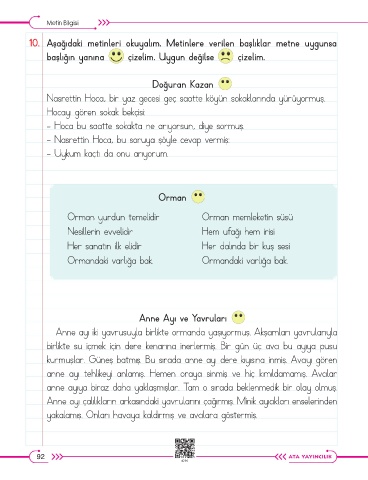 Metin Bilgisi
10. Aşağıdaki metinleri okuyalım. Metinlere verilen başlıklar metne uygunsa
başlığın yanına çizelim. Uygun değilse çizelim.
Doğuran Kazan
Nasrettin Hoca, bir yaz gecesi geç saatte köyün sokaklarında yürüyormuş.
Hocayı gören sokak bekçisi:
– Hoca bu saatte sokakta ne arıyorsun, diye sormuş.
– Nasrettin Hoca, bu soruya şöyle cevap vermiş:
– Uykum kaçtı da onu arıyorum.
Orman
Orman yurdun temelidir
Nesillerin evvelidir
Her sanatın ilk elidir
Ormandaki varlığa bak.
Orman memleketin süsü
Hem ufağı hem irisi
Her dalında bir kuş sesi
Ormandaki varlığa bak.
Anne Ayı ve Yavruları
Anne ayı iki yavrusuyla birlikte ormanda yaşıyormuş. Akşamları yavrularıyla
birlikte su içmek için dere kenarına inerlermiş. Bir gün üç avcı bu ayıya pusu
kurmuşlar. Güneş batmış. Bu sırada anne ayı dere kıyısına inmiş. Avcıyı gören
anne ayı tehlikeyi anlamış. Hemen oraya sinmiş ve hiç kımıldamamış. Avcılar
anne ayıya biraz daha yaklaşmışlar. Tam o sırada beklenmedik bir olay olmuş.
Anne ayı çalılıkların arkasındaki yavrularını çağırmış. Minik ayıcıkları enselerinden
yakalamış. Onları havaya kaldırmış ve avcılara göstermiş.
92
ATA YAYINCILIK